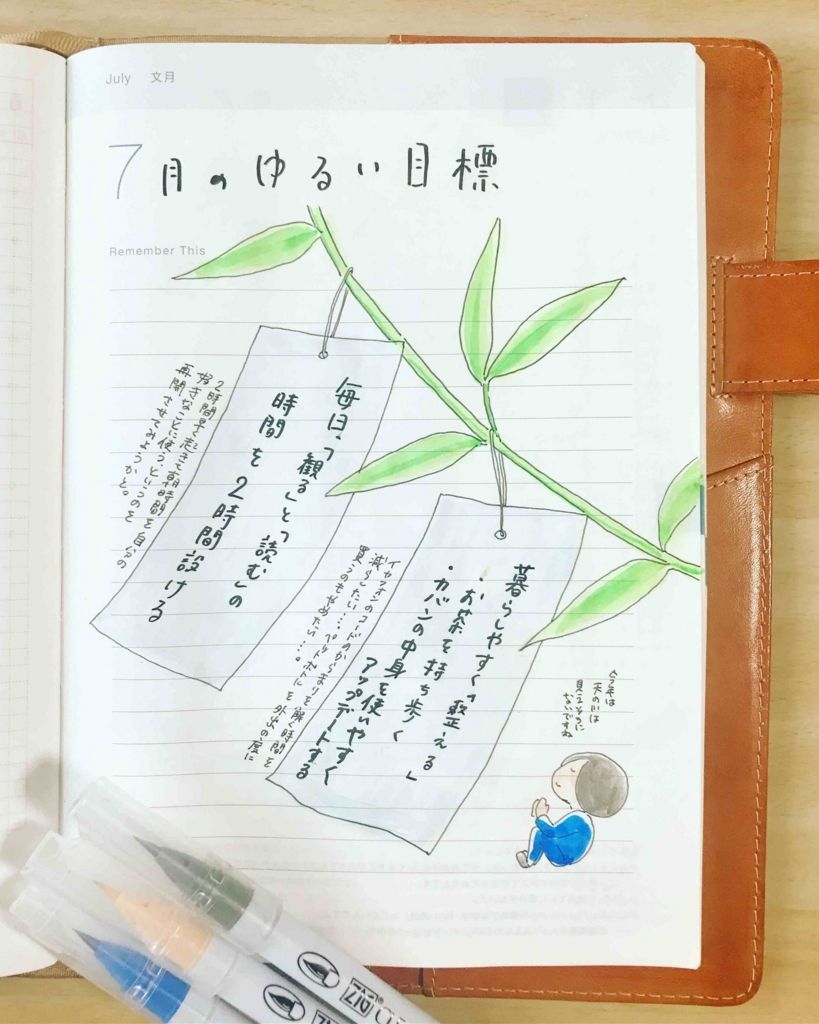 July 文月
7月のゆるい目標
Remember This
毎日、「観る」と「読む」の
時間を2時間設ける
2時間早く起きて朝時間を自分の
好きなことに使う、というのを
再開させてみようかと。
暮らしやすく「整える」
・お茶を持ち歩く
・カバンの中身を使いやすく
アップデートする
イヤフォンのコードのからまりを解く時間を
減らしたい…。ペットボトルを外出の度に
買うのもやめたい…。
今年は
天の川は
見えそうに
ないですね
ZIG